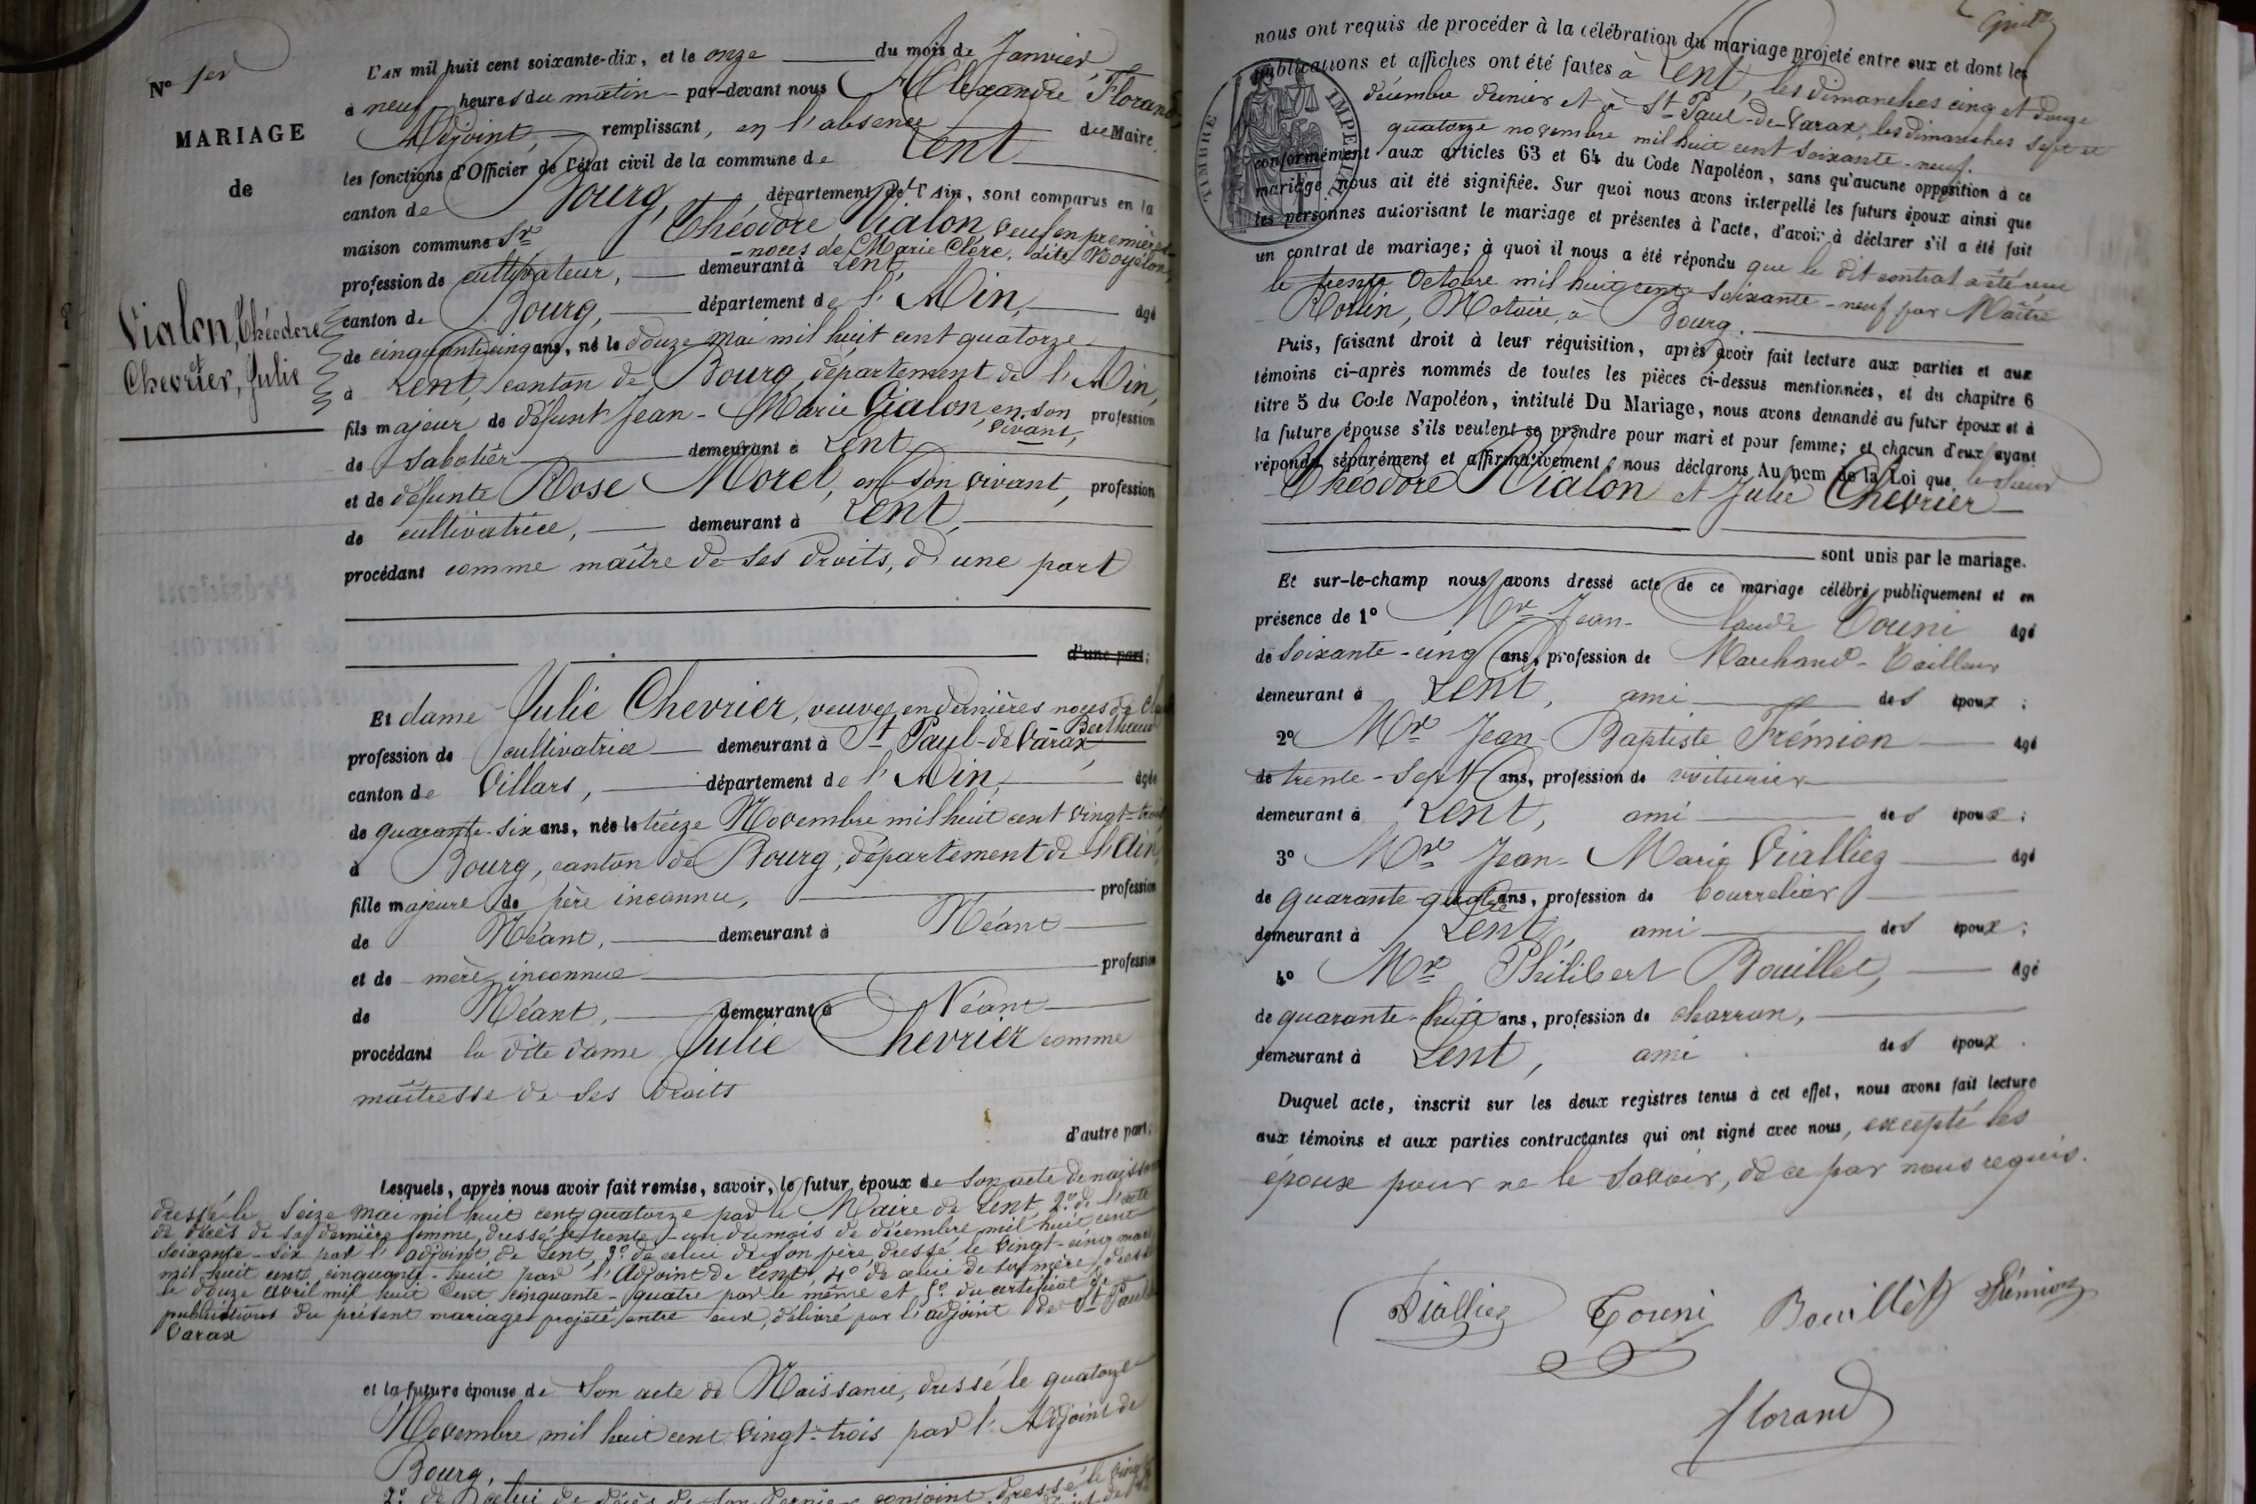 N° 1er
MARIAGE
de
Vialon, Théodore
et
Chevrier, Julie
L'AN mil huit cent soixante-dix, et le onze du mois de Janvier
à neuf heures du matin par-devant nous Alexandre Florand,
Adjoint, remplissant, en l'absence du Maire,
les fonctions d'Officier de l'état civil de la commune de Lent
canton de Bourg, département de l'Ain, sont comparus en la
maison commune Sr Théodore Vialon, veuf en premières
noces de Marie Clére, dite Noyélon,
profession de cultivateur, demeurant à Lent,
canton de Bourg, département de l'Ain, âgé
de cinquante cinq ans, né le douze mai mil huit cent quatorze
à Lent, canton de Bourg, département de l'Ain,
fils majeur de défunt Jean-Marie Vialon, en son vivant, profession
de sabotier demeurant à Lent
et de défunte Rose Morel, en son vivant, profession
de cultivatrice, demeurant à Lent,
procédant comme maître de ses droits, d'une part
d'une part;
Et dame Julie Chevrier, veuve en dernières noces de
Berthaud
profession de cultivatrice demeurant à St Paul-de-Varax,
canton de Villars, département de l'Ain, âgée
de quarante-six ans, née le treize Novembre mil huit cent vingt-trois
à Bourg, canton de Bourg, département de l'Ain,
fille majeure de père inconnu, profession
de Néant, demeurant à Néant
et de mère inconnue profession
de Néant, demeurant à Néant
procédant la dite dame Julie Chevrier comme
maîtresse de ses droits
d'autre part;
Lesquels, après nous avoir fait remise, savoir, le futur époux de son acte de naissance
dressé le seize mai mil huit cent quatorze par le Maire de Lent, 2° de l'acte
de décès de sa dernière femme, dressé le trente-un du mois de décembre mil huit cent
soixante-six par l'adjoint de Lent, 3° de celui de son père dressé le vingt-cinq mars
mil huit cent cinquante-huit par l'Adjoint de Lent, 4° de celui de sa mère, dressé
le douze avril mil huit cent cinquante-quatre par le même et 5° du certificat de
publications du présent mariage projeté entre eux, délivré par l'adjoint de St Paul de
Varax
et la future épouse de son acte de Naissance, dressé le quatorze
Novembre mil huit cent vingt-trois par l'Adjoint de
Bourg,
2° de celui de décès de son dernier conjoint dressé le vingt
nous ont requis de procéder à la célébration du mariage projeté entre eux et dont les
publications et affiches ont été faites à Lent, les dimanches cinq et douze
décembre dernier et à St Paul-de-Varax, les dimanches sept et
quatorze novembre mil huit cent soixante-neuf.
TIMBRE IMPE
conformément aux articles 63 et 64 du Code Napoléon, sans qu'aucune opposition à ce
mariage nous ait été signifiée. Sur quoi nous avons interpellé les futurs époux ainsi que
les personnes autorisant le mariage et présentes à l'acte, d'avoir à déclarer s'il a été fait
un contrat de mariage; à quoi il nous a été répondu que le dit contrat a été reçu
le trente Octobre mil huit cent soixante-neuf par Maître
Rollin, Notaire, à Bourg.
Puis, faisant droit à leur réquisition, après avoir fait lecture aux parties et aux
témoins ci-après nommés de toutes les pièces ci-dessus mentionnées, et du chapitre 6
titre 5 du Code Napoléon, intitulé Du Mariage, nous avons demandé au futur époux et à
la future épouse s'ils veulent se prendre pour mari et pour femme; et chacun d'eux ayant
répondu séparément et affirmativement, nous déclarons Au nom de la Loi que le sieur
Théodore Vialon et Julie Chevrier
sont unis par le mariage.
Et sur-le-champ nous avons dressé acte de ce mariage célébré publiquement et en
présence de 1° Mr Jean-Claude Touni âgé
de soixante-cinq ans, profession de Marchand-Tailleur
demeurant à Lent, ami des époux;
2° Mr Jean-Baptiste Frémion âgé
de trente-sept ans, profession de voiturier
demeurant à Lent, ami des époux;
3° Mr Jean-Marie Vialliez âgé
de quarante-quatre ans, profession de bourrelier
demeurant à Lent, ami des époux;
4° Mr Philibert Bouillet, âgé
de quarante-huit ans, profession de charron,
demeurant à Lent, ami des époux.
Duquel acte, inscrit sur les deux registres tenus à cet effet, nous avons fait lecture
aux témoins et aux parties contractantes qui ont signé avec nous, excepté les
époux pour ne le savoir, de ce par nous requis.
Vialliez Touni Bouillet Frémion
Florand